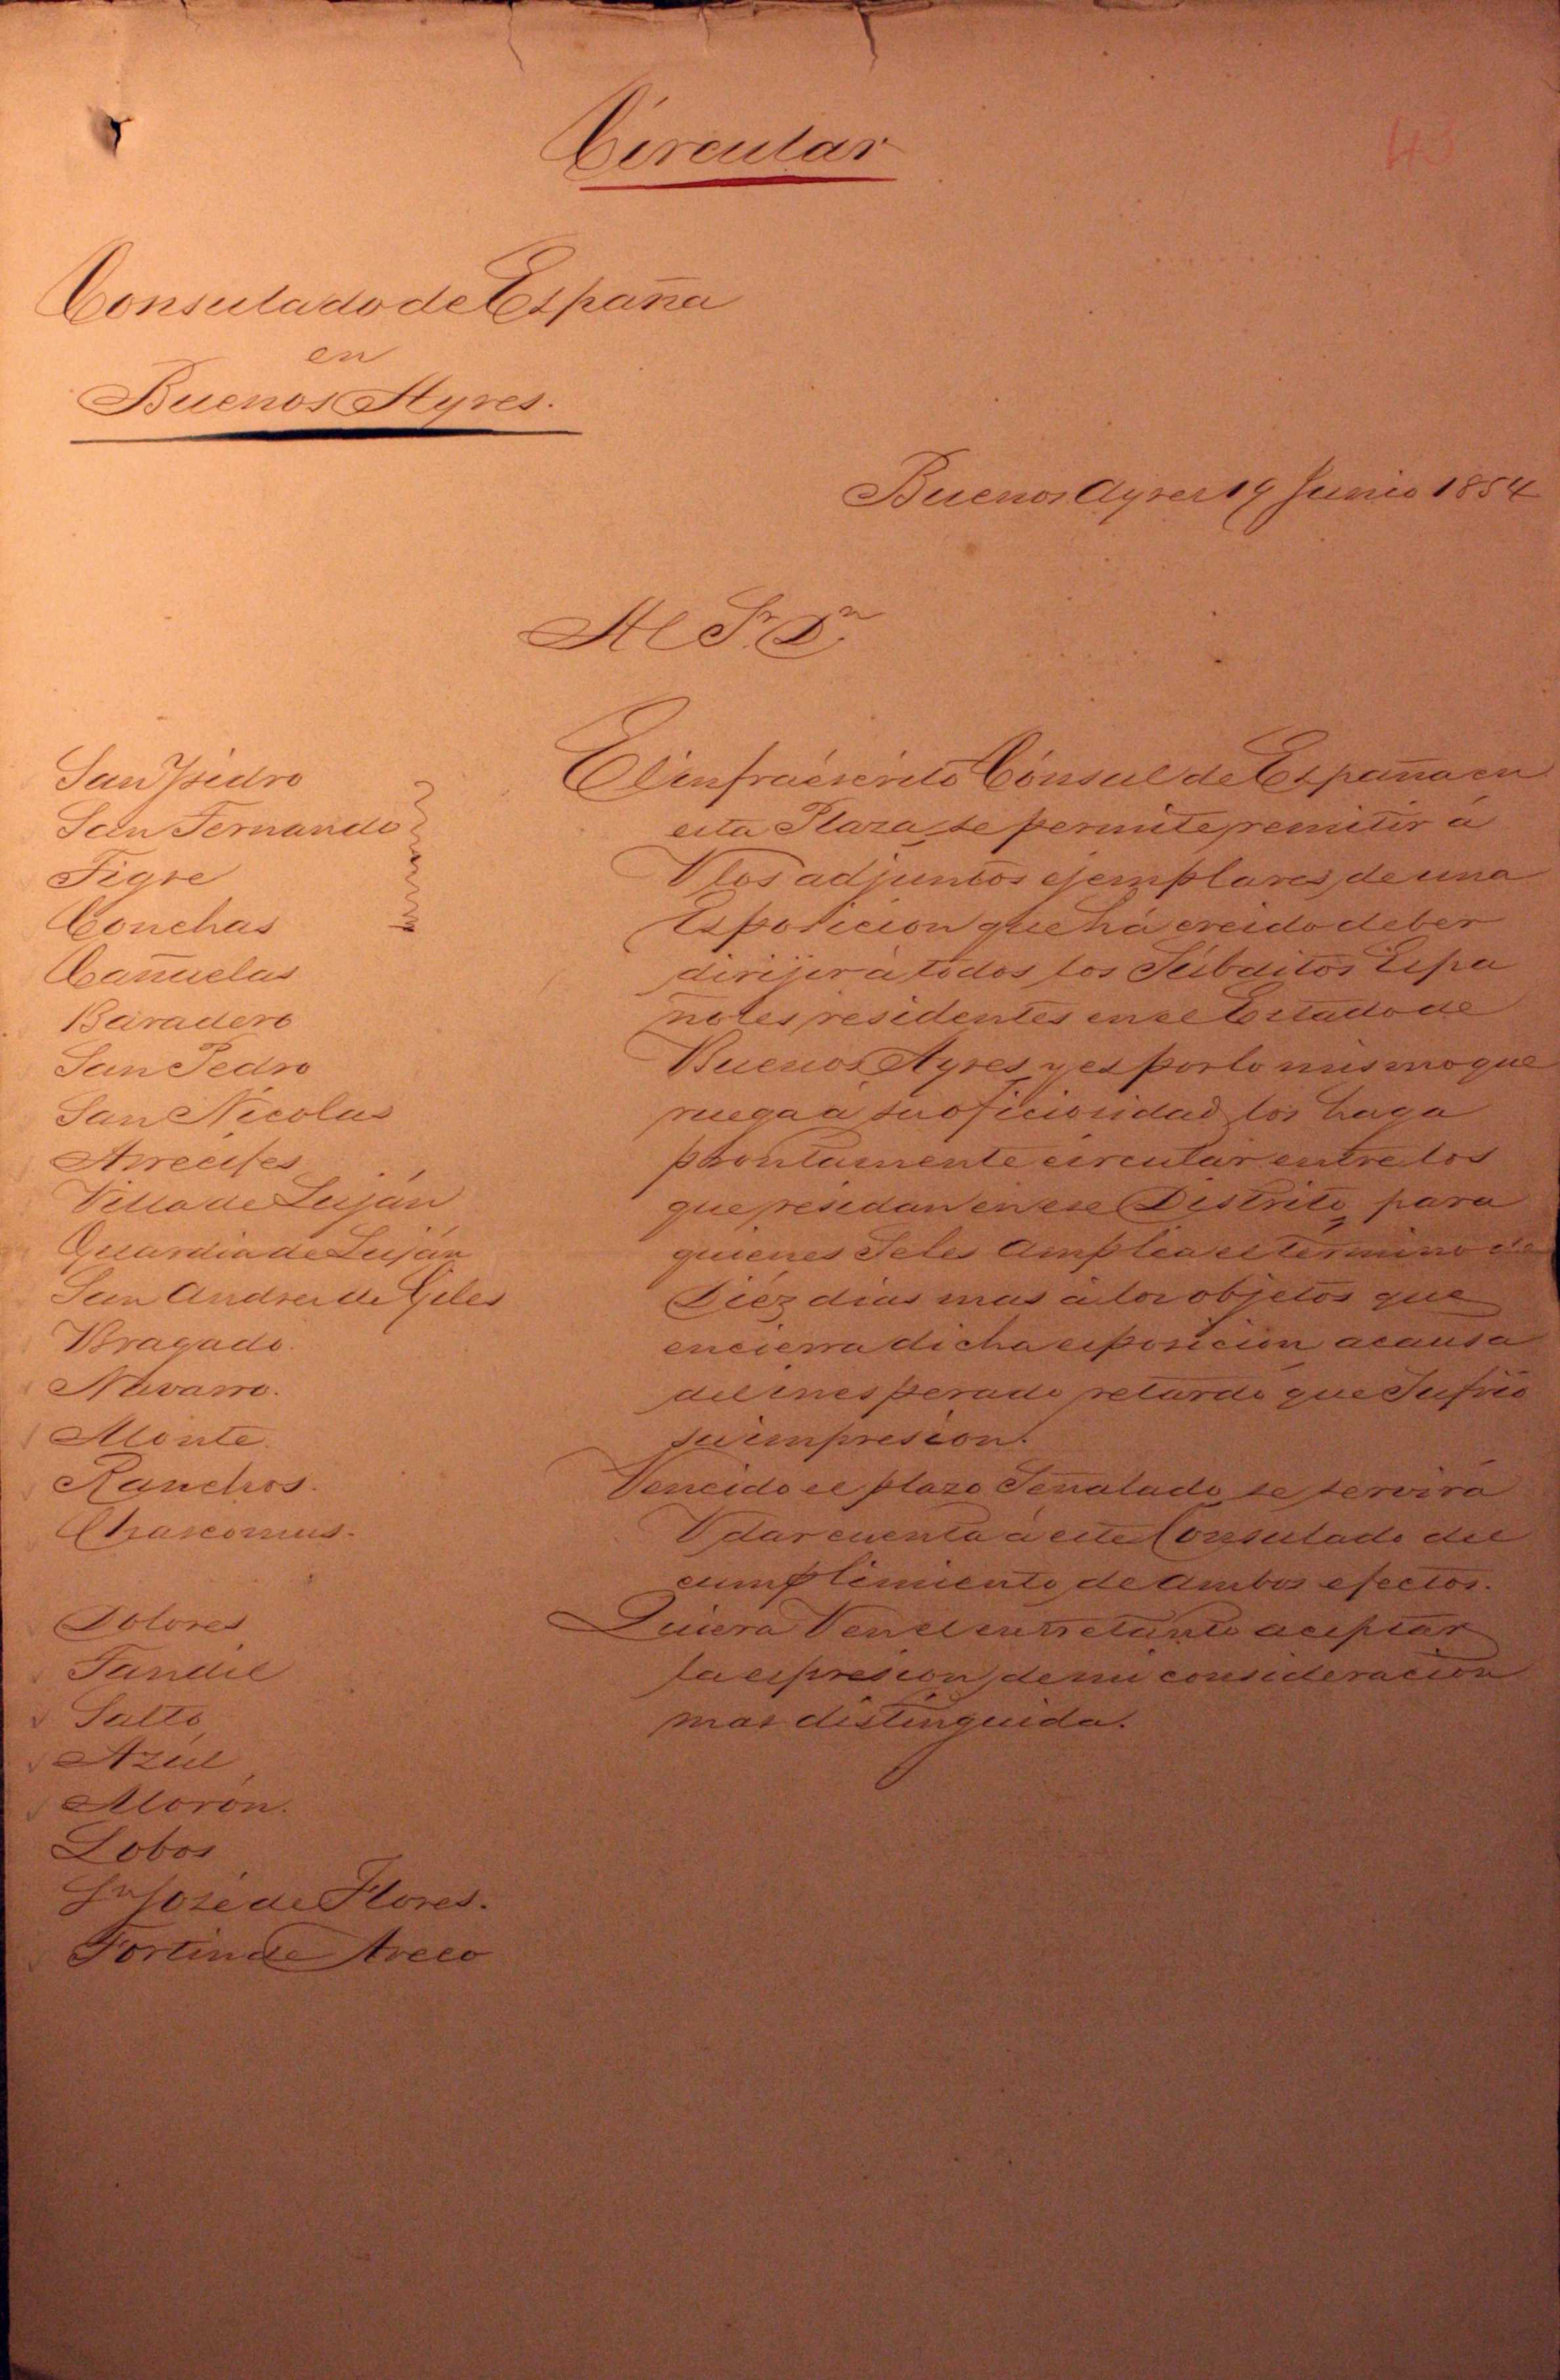 Circular
43
Consulado de España
en
Buenos Ayres.
Buenos Ayres 19 Junio 1854
Al Sr. Dn.
San Ysidro
San Fernando
Tigre
Conchas
Cañuelas
Baradero
San Pedro
San Nicolas
Arrecifes
Villa de Luján
Guardia de Luján
San Andres de Giles
Bragado.
Navarro.
Monte.
Ranchos.
Chascomus.
Dolores
Tandil
Salto
Azúl
Morón.
Lobos
Sn José de Flores.
Fortin de Areco
El infraéscrito Cónsul de España en
esta Plaza, se permite remitir á
V los adjuntos ejemplares de una
Esposicion que há creido deber
dirijir à todos los Súbditos Espa
ñoles residentes en el Estado de
Buenos Ayres, y es por lo mismo que
ruega a su oficiosidad los haga
prontamente circular entre los
que residan en ese Distrito, para
quienes Se les amplia el término de
Diéz dias mas à los objetos que
encierra dicha esposicion a causa
del inesperado retardo que Sufrió
su impresion.
Vencido el plazo Señalado se servirá
V dar cuenta à este Consulado del
cumplimiento de ambos efectos.
Quiera V en el entretanto aceptar
la espresion de mi consideracion
mas distinguida.